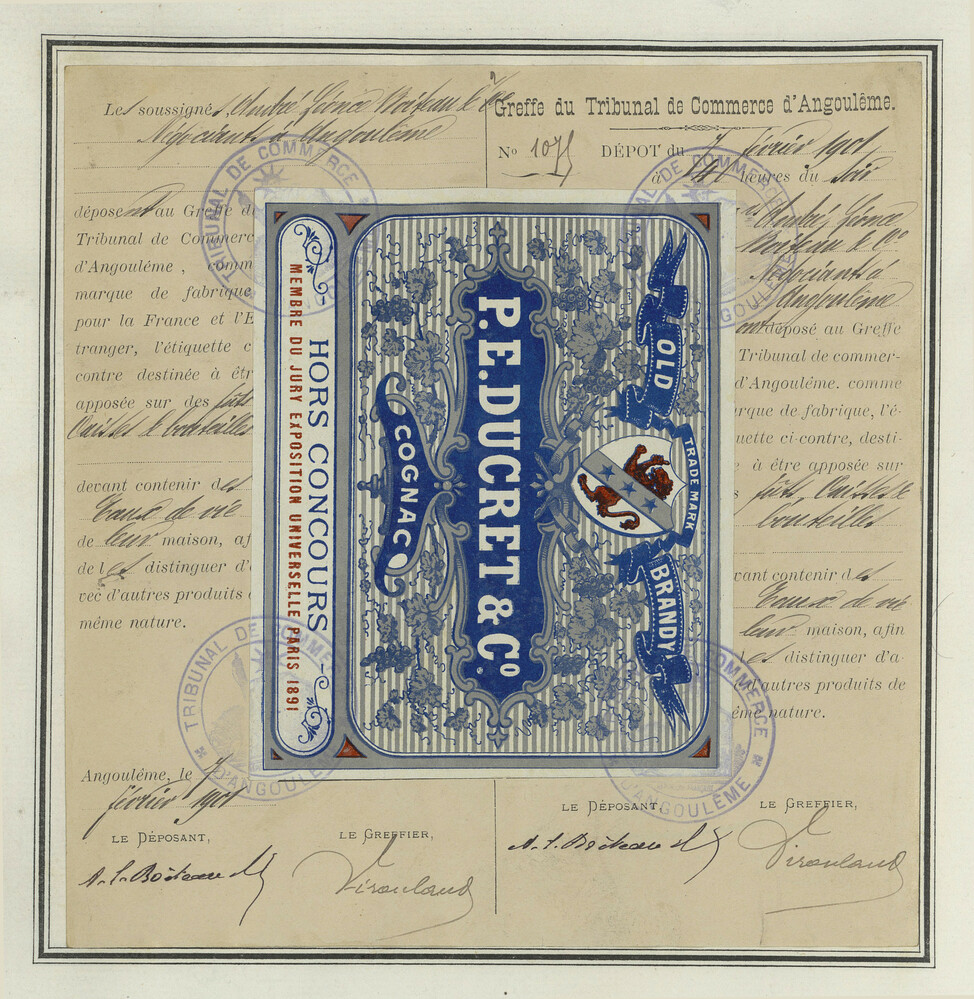 Les soussignés, André Léonce Boiteau & Cie
Négociants à Angoulême
déposent au Greffe d
Tribunal de Commerc
d'Angoulême, comm
marque de fabrique
pour la France et l'E
tranger, l'étiquette c
contre destinée à êtr
apposée sur des fûts
Caisses & bouteilles
devant contenir des
Eaux de vie
de leur maison, af
de les distinguer d'
vec d'autres produits
même nature.
Angoulême, le 7
février 1901
LE DÉPOSANT,
LE GREFFIER,
A. L. Boiteau
Greffe du Tribunal de Commerce d'Angoulême.
No 1075 DÉPOT du 7 février 1901
à heures du soir
André, Léonce
Boiteau & Cie
Négociants à
Angoulême
ont déposé au Greffe
Tribunal de commer-
d'Angoulême. comme
rque de fabrique, l'é-
uette ci-contre, desti-
à être apposée sur
fûts, Caisses &
bouteilles
vant contenir des
Eaux de vie
leur maison, afin
les distinguer d'a-
d'autres produits de
ême nature.
LE DÉPOSANT,
LE GREFFIER,
A. L. Boiteau
OLD
TRADE MARK
BRANDY
P.E.DUCRET & Co.
COGNAC
HORS CONCOURS
MEMBRE DU JURY EXPOSITION UNIVERSELLE PARIS 1891
TRIBUNAL DE COMMERCE
TRIBUNAL DE COMMERCE
D'ANGOULÊME
TRIBUNAL DE COMMERCE
D'ANGOULÊME
COMMERCE
D'ANGOULÊME